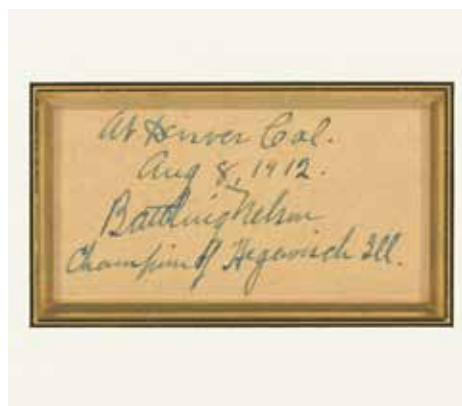 At Denver Col.
Aug 8, 1912.
Battling Nelson
Champion of Hegewisch Ill.